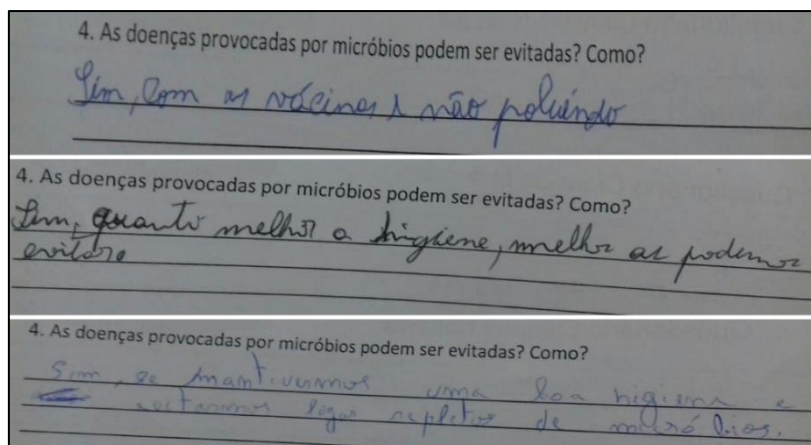 4. As doenças provocadas por micróbios podem ser evitadas? Como?
Sim, com as vácinas e não poluindo
4. As doenças provocadas por micróbios podem ser evitadas? Como?
Sim, quanto melhor a higiene, melhor as podemos
evitare
4. As doenças provocadas por micróbios podem ser evitadas? Como?
Sim, se mantivermos uma boa higiene e
evitarmos repletos de micróbios.